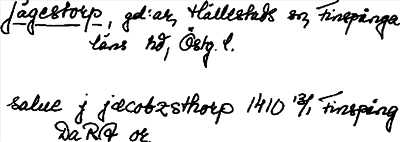 Jägestorp, gd:ar, Hällestads sn, Finspånga
läns hd, Östg. l.
salue j jæcobzsthorp 1410 13/1 Finspång
DaRA or